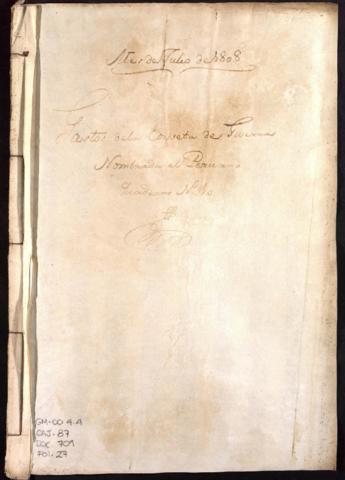 Mes de Julio de 1808
Gastos de la Corveta de Guerra
Nombrada el Peruano
Quaderno Nº
GM-CO 4.4
CAJ. 87
DOC. 709
FOL. 27